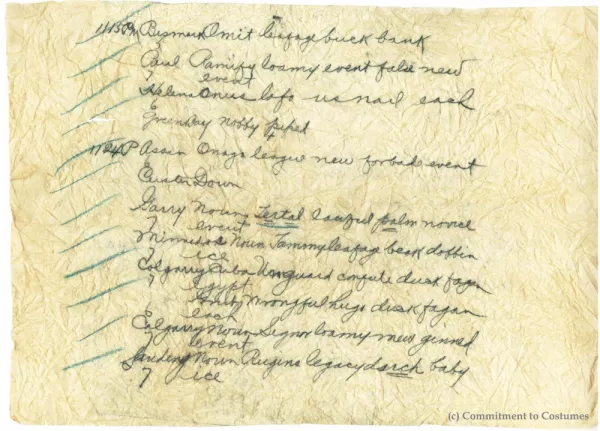 1113PM Bismark Omit leafage buck bank
Paul Ramify loamy event false new
7 event
Helena Onus lofo us nail each
E
Green Bay nobby piped
1124P Assin Onago league new forbade event
Custer Down
Garry Noun Tertal lawful palm novice
7 event
Minnedos Noun Jammyleafage beak dobbin
7 ice
Calgarry Cuba Unguard confute duck fagan
7 egypt
Wrongful hugo duck fagan
each
Calgarry Noun Signor loamy new ginned
7 event
Landing Noun Rugins legacy duck baby
7 ice
(c) Commitment to Costumes